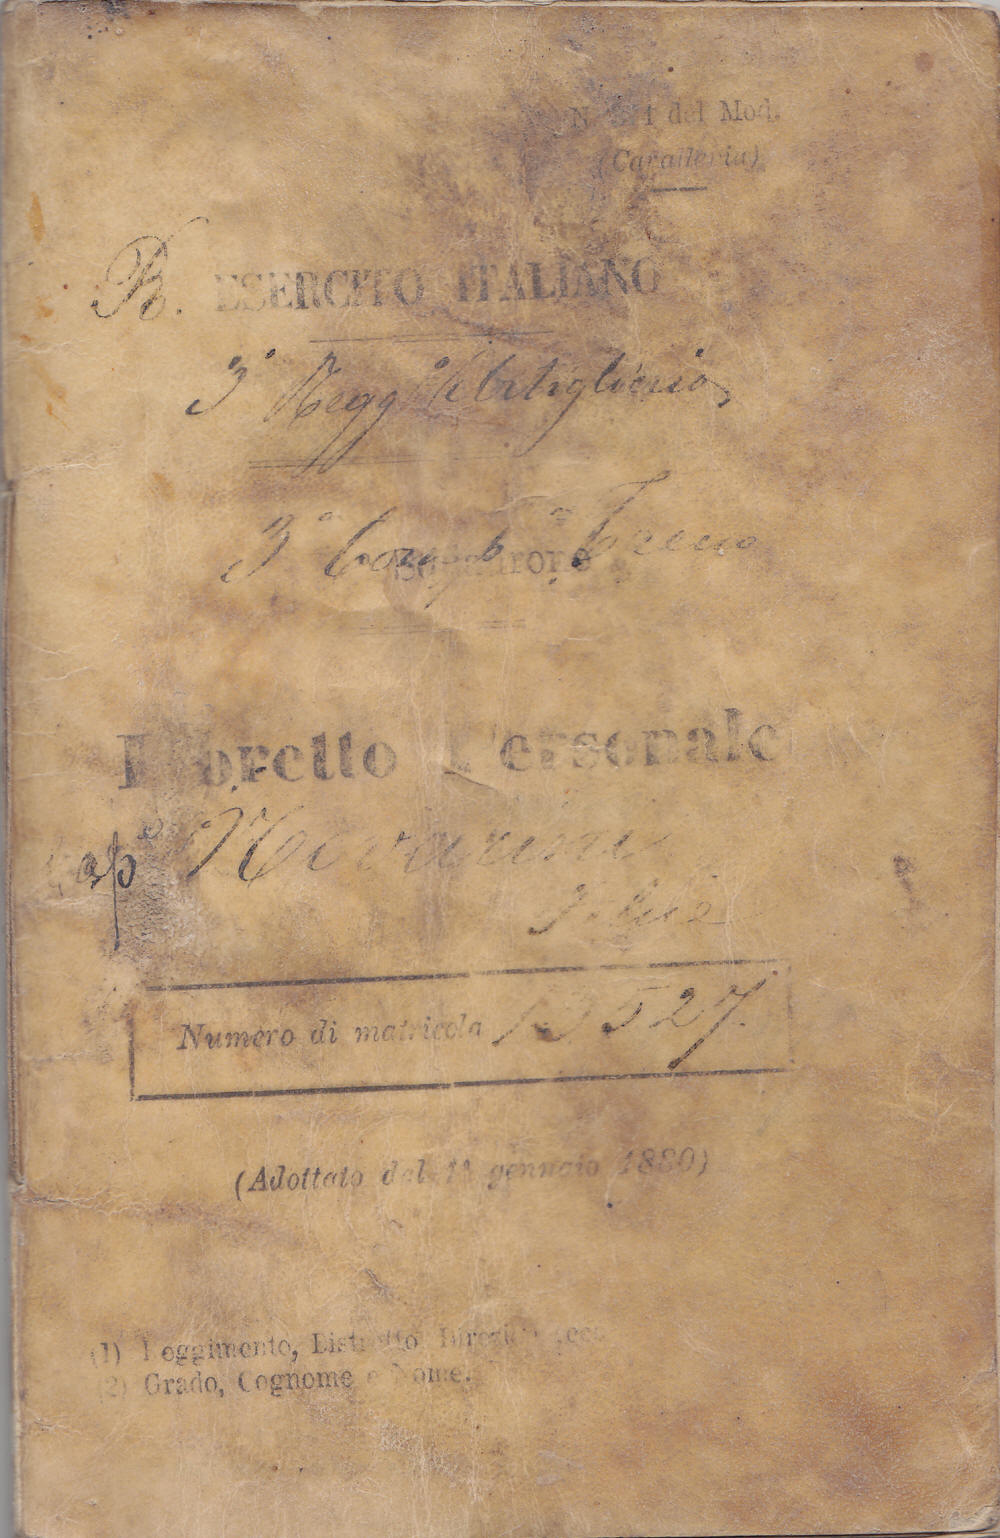 N del Mod.
(Cavalleria)
R. ESERCITO ITALIANO
3° Regg° Artiglieria
3ª Comp.ª Treno
Squadrone
Libretto Personale
Cap.e Novarini
Numero di matricola 13527
(Adottato dal 1° gennaio 1880)
(1) Reggimento, Distretto, Direzione ecc.
(2) Grado, Cognome e Nome.